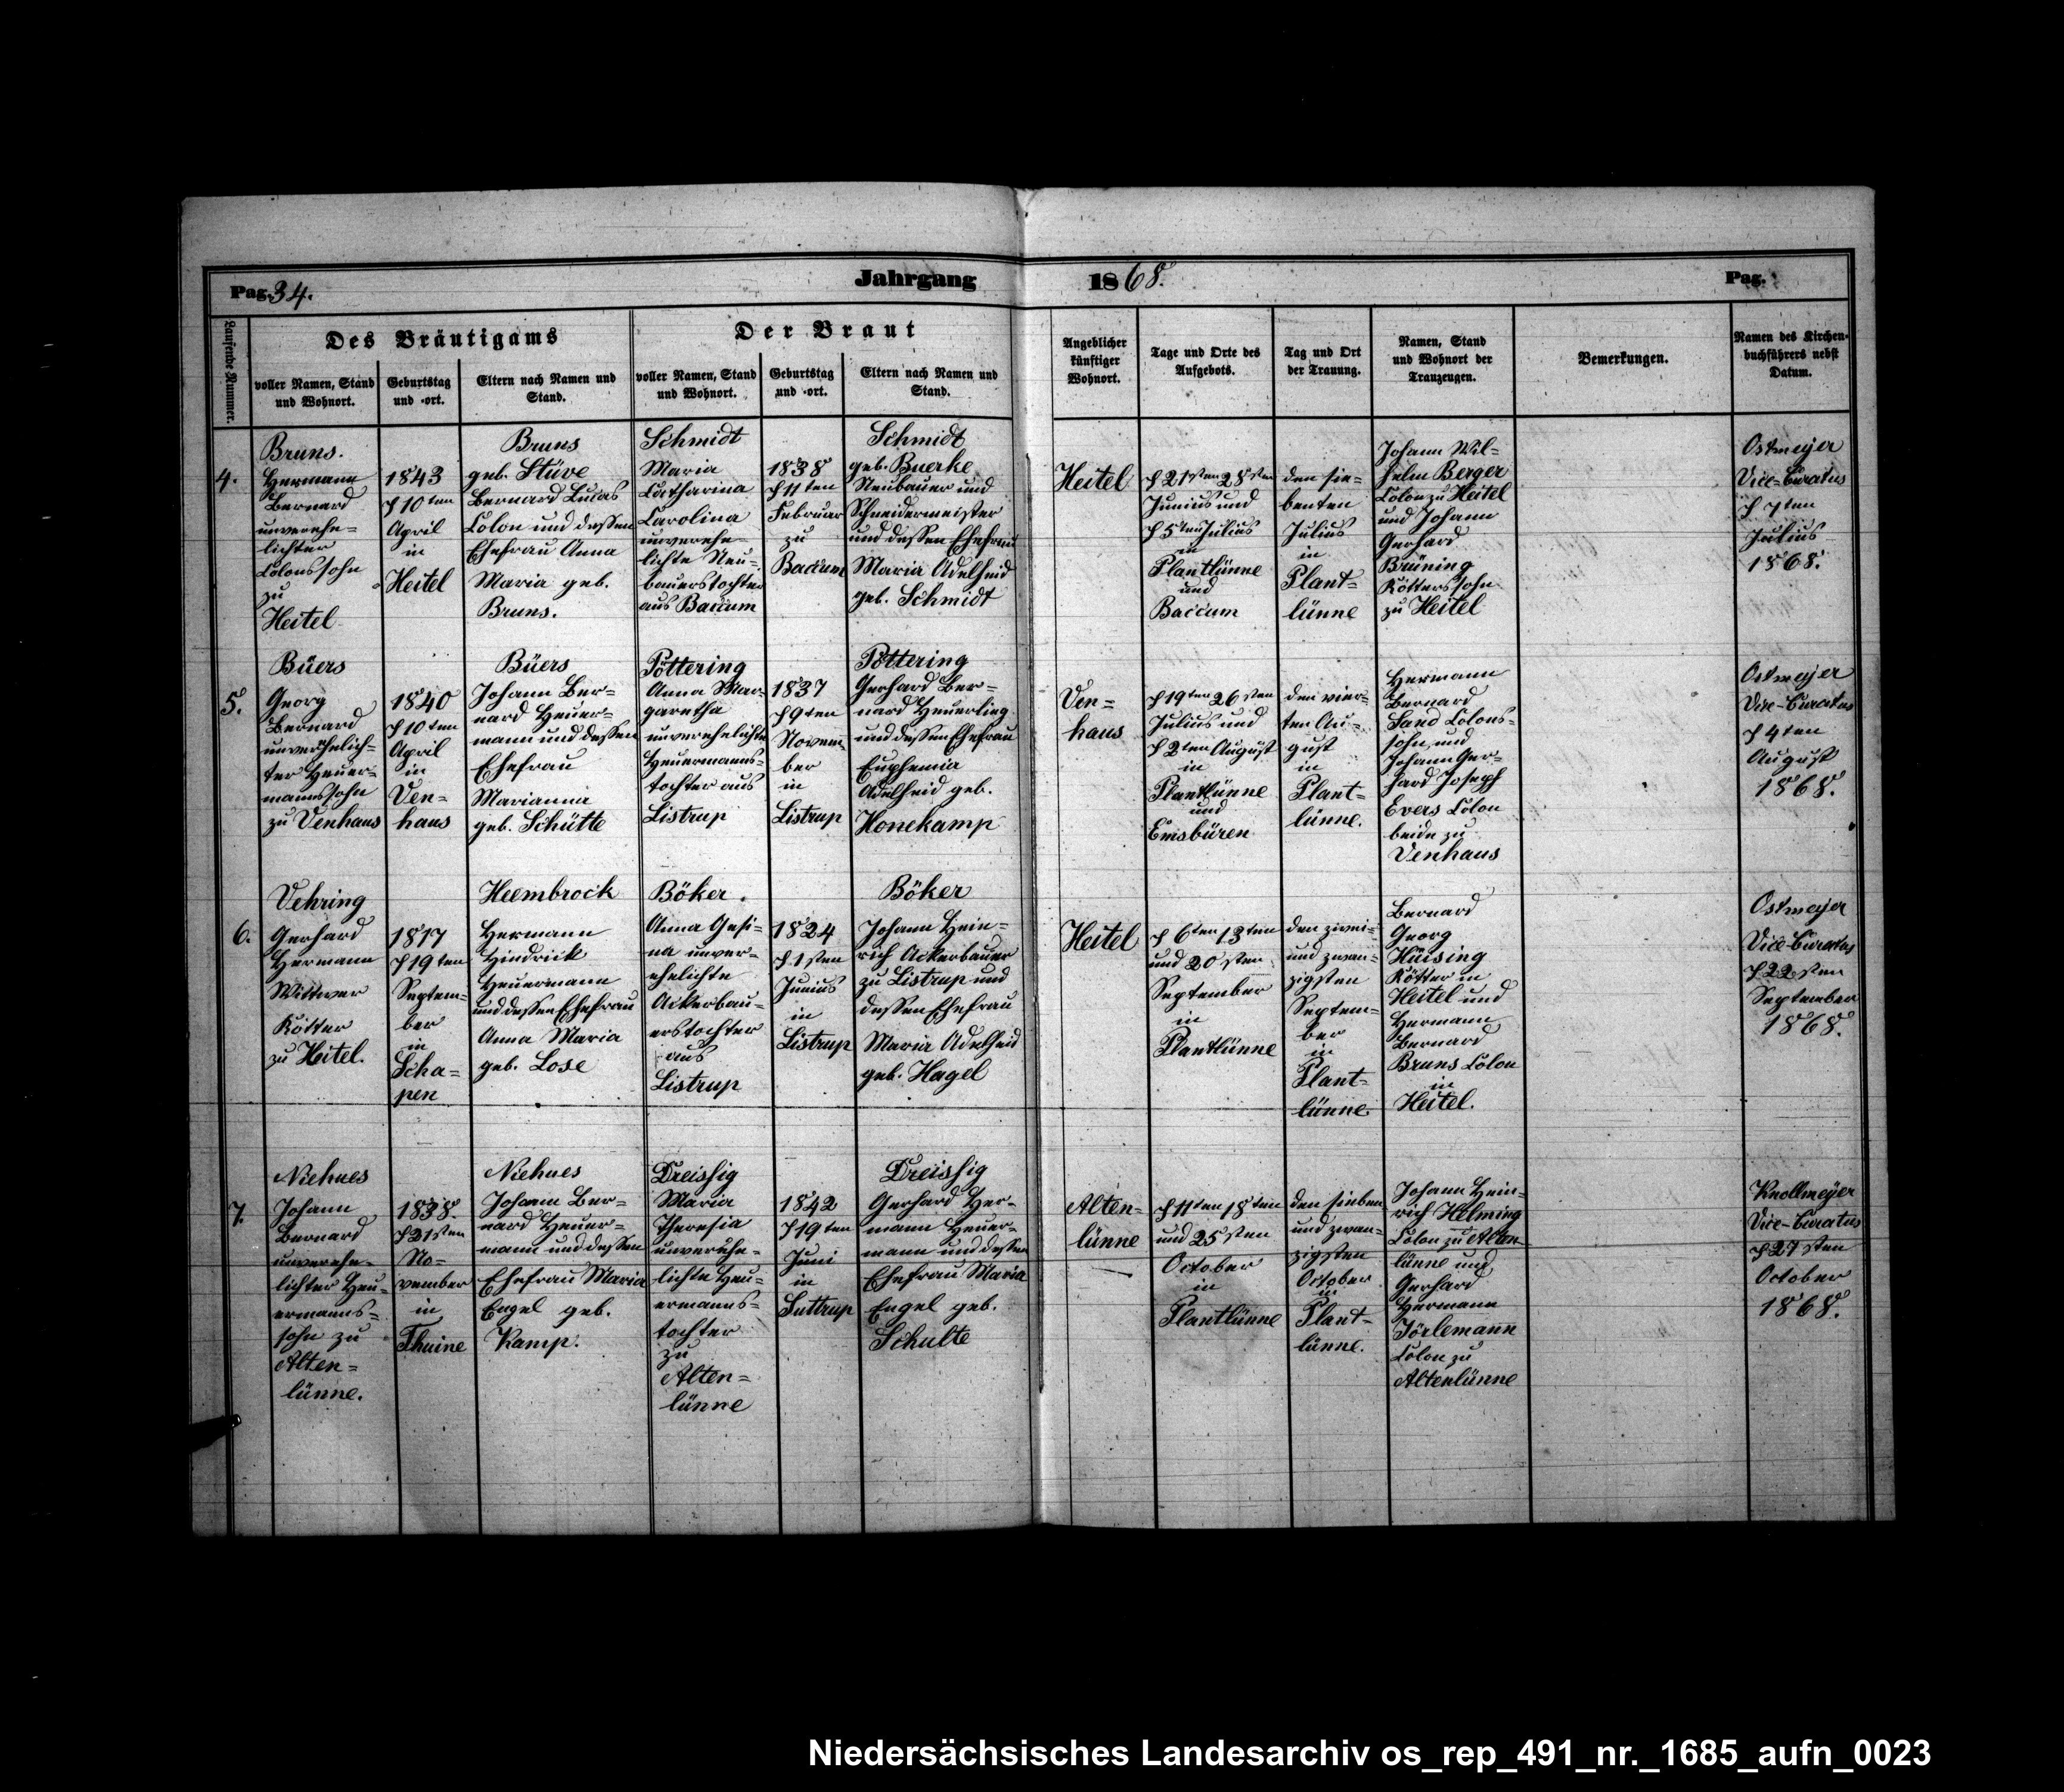 Pag. 34.
Jahrgang 1868.
Pag.
Laufende Nummer.
Des Bräutigams
voller Namen, Stand
und Wohnort.
Geburtstag
und -ort.
Eltern nach Namen und
Stand.
Der Braut
voller Namen, Stand
und Wohnort.
Geburtstag
und -ort.
Eltern nach Namen und
Stand.
Angeblicher
künftiger
Wohnort.
Tage und Orte des
Aufgebots.
Tag und Ort
der Trauung.
Namen, Stand
und Wohnort der
Trauzeugen.
Bemerkungen.
Namen des Kirchen-
buchführers nebst
Datum.
4.
Bruns.
Hermann
Bernard
unverehe=
lichter
Colonssohn
zu
Heitel
1843
d 10ten
April
in
Heitel
Bruns
geb. Stüve
Bernard Lucas
Colon und dessen
Ehefrau Anna
Maria geb.
Bruns.
Schmidt
Maria
Catharina
Carolina
unverehe=
lichte Neu=
bauerstochter
aus Baccum
1838
d 11ten
Februar
zu
Baccum
Schmidt
geb. Buerke
Neubauer und
Schneidermeister
und dessen Ehefrau
Maria Adelheid
geb. Schmidt
Heitel
d 21sten 28sten
Junius und
d 5ten Julius
in
Plantlünne
und
Baccum
den sie=
benten
Julius
in
Plant=
lünne
Johann Wil=
helm Berger
Colon zu Heitel
und Johann
Gerhard
Brüning
Kötterssohn
zu Heitel
Ostmeyer
Vice-Curatus
d 7ten
Julius
1868.
5.
Büers
Georg
Bernard
unverehelich=
ter Heuer=
mannssohn
zu Venhaus
1840
d 10ten
April
in
Ven=
haus
Büers
Johann Ber=
nard Heuer=
mann und dessen
Ehefrau
Marianna
geb. Schütte
Pöttering
Anna Mar=
garetha
unverehelichte
Heuermanns=
tochter aus
Listrup
1837
d 9ten
Novem=
ber
in
Listrup
Pöttering
Gerhard Ber=
nard Heuerling
und dessen Ehefrau
Euphemia
Adelheid geb.
Honekamp
Ven=
haus
d 19ten 26sten
Julius und
d 2ten August
in
Plantlünne
und
Emsbüren
den vier=
ten Au=
gust
in
Plant=
lünne.
Hermann
Bernard
Sand Colons=
sohn und
Johann Ger=
hard Joseph
Evers Colon
beide zu
Venhaus
Ostmeyer
Vice-Curatus
d 4ten
August
1868.
6.
Vehring
Gerhard
Hermann
Wittwer
Kötter
zu Heitel.
1817
d 19ten
Septem=
ber
in
Scha=
pen
Heembrock
Hermann
Hindrick
Heuermann
und dessen Ehefrau
Anna Maria
geb. Lose
Böker.
Anna Gesi=
na unver=
ehelichte
Ackerbau=
erstochter
aus
Listrup
1824
d 1sten
Junius
in
Listrup
Böker
Johann Hein=
rich Ackerbauer
zu Listrup und
dessen Ehefrau
Maria Adelheid
geb. Hagel
Heitel
d 6ten 13ten
und 20sten
September
in
Plantlünne
den zwei=
und zwan=
zigsten
Septem=
ber
in
Plant=
lünne.
Bernard
Georg
Hüising
Kötter in
Heitel und
Hermann
Bernard
Bruns Colon
in
Heitel.
Ostmeyer
Vice-Curatus
d 22sten
September
1868.
7.
Niehues
Johann
Bernard
unverehe=
lichter Heu=
ermanns=
sohn zu
Alten=
lünne.
1838.
d 21sten
No=
vember
in
Thuine
Niehues
Johann Ber=
nard Heuer=
mann und dessen
Ehefrau Maria
Engel geb.
Kamp.
Dreissig
Maria
Theresia
unverehe=
lichte Heu=
ermanns=
tochter
zu
Alten=
lünne
1842
d 19ten
Juni
in
Suttrup
Dreissig
Gerhard Her=
mann Heuer=
mann und dessen
Ehefrau Maria
Engel geb.
Schulte
Alten=
lünne
d 11ten 18ten
und 25sten
October
in
Plantlünne
den sieben
und zwan=
zigsten
October
in
Plant=
lünne.
Johann Hein=
rich Helming
Colon zu Alten=
lünne und
Gerhard
Hermann
Colon zu
Altenlünne
Knollmeyer
Vice-Curatus
d 27sten
October
1868.
Niedersächsisches Landesarchiv os_rep_491_nr._1685_aufn_0023